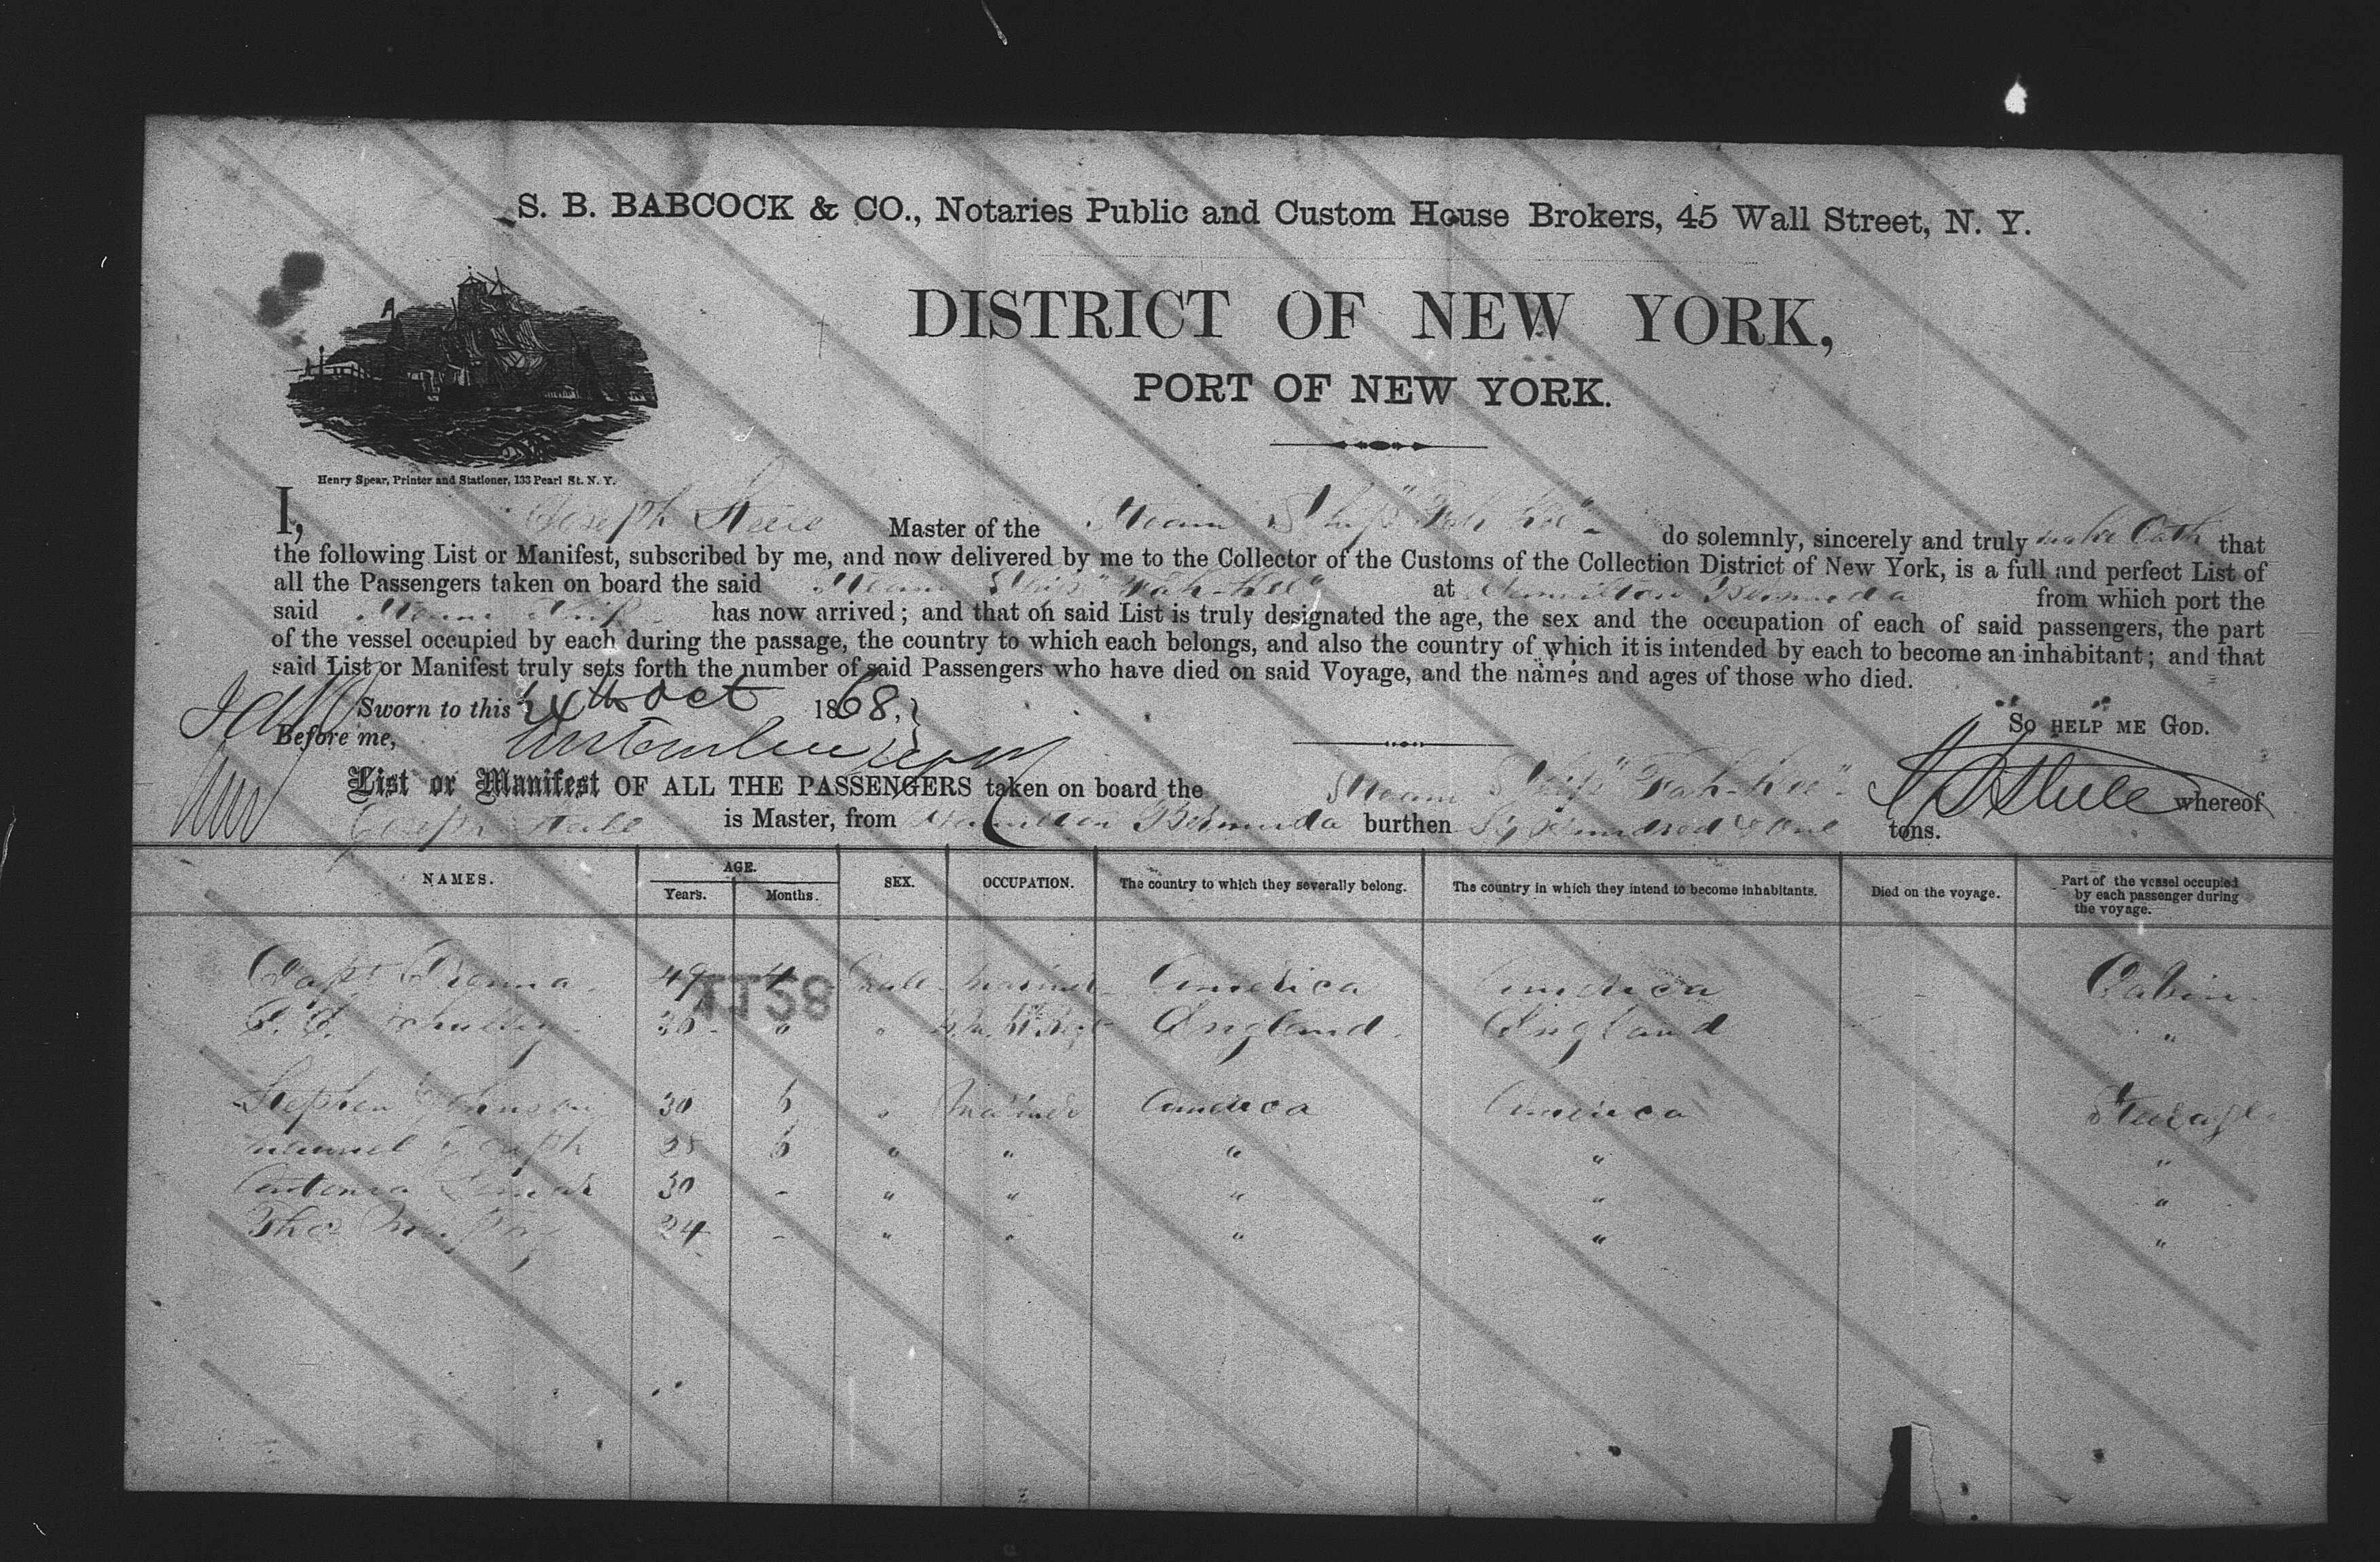 S. B. BABCOCK & CO., Notaries Public and Custom House Brokers, 45 Wall Street, N. Y.
DISTRICT OF NEW YORK,
PORT OF NEW YORK.
Henry Spear, Printer and Stationer, 133 Pearl St. N. Y.
I, Joseph Steele Master of the Steam Ship "Fah Kee" do solemnly, sincerely and truly make Oath that
the following List or Manifest, subscribed by me, and now delivered by me to the Collector of the Customs of the Collection District of New York, is a full and perfect List of
all the Passengers taken on board the said Steam Ship "Fah-Kee" at Hamilton Bermuda from which port the
said Steam Ship has now arrived; and that on said List is truly designated the age, the sex and the occupation of each of said passengers, the part
of the vessel occupied by each during the passage, the country to which each belongs, and also the country of which it is intended by each to become an inhabitant; and that
said List or Manifest truly sets forth the number of said Passengers who have died on said Voyage, and the names and ages of those who died.
Sworn to this Oct 1868,
So HELP ME GOD.
Before me,
List or Manifest OF ALL THE PASSENGERS taken on board the Steam Ship "Fah-Kee" J Steele whereof
Joseph Steele is Master, from Hamilton Bermuda burthen Six Hundred & One tons.
NAMES. AGE. Years. Months. SEX. OCCUPATION. The country to which they severally belong. The country in which they intend to become inhabitants. Died on the voyage. Part of the vessel occupied by each passenger during the voyage.
Capt 49 4 Male Mariner America America - Cabin
1128
36 " England England "
Stephen Johnson 30 6 " Mariner America America Steerage
Manuel Joseph 28 6 " " " " "
Antonio 30 - " " " " "
Thos 24 - " " " " "